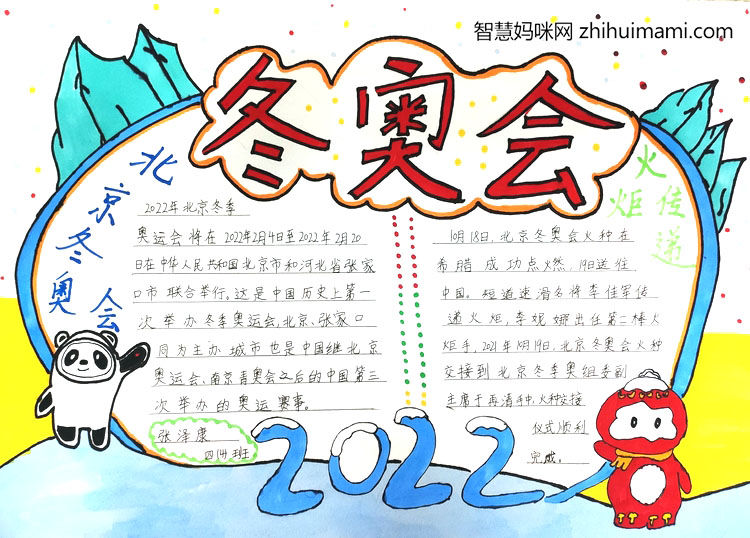 智慧妈咪网 zhihuimami.com
冬奥会
北京冬奥会
2022年北京冬季
奥运会将在2022年2月4日至2022年2月20
日在中华人民共和国北京市和河北省张家
口市联合举行。这是中国历史上第一
次举办冬季奥运会,北京、张家口
同为主办城市也是中国继北京
奥运会、南京青奥会之后的中国第三
次举办的奥运赛事。
张泽康
四(4)班
火炬传递
10月18日,北京冬奥会火种在
希腊成功点燃,19日送往
中国。短道速滑名将李佳军传
递火炬,李妮娜出任第二棒火
炬手,2021年10月19日,北京冬奥会火种
交接到北京冬季奥组委副
主席于再清手中,火种交接
仪式顺利
完成。
2022